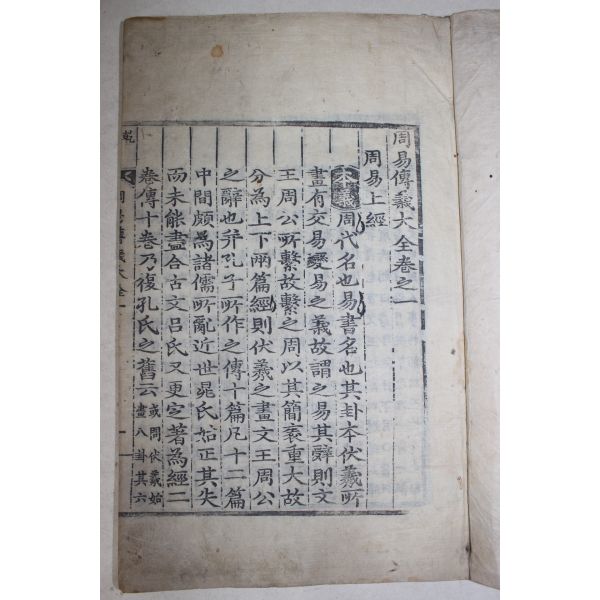 周易傳義大全卷之一
周易上經
本義周代名也易書名也其卦本伏羲所
畫有交易變易之義故謂之易其辭則文
王周公所繫故繫之周以其簡袠重大故
分為上下兩篇經則伏羲之畫文王周公
之辭也幷孔子所作之傳十篇凡十二篇
中間頗為諸儒所亂近世晁氏始正其失
而未能盡合古文呂氏又更定著為經二
卷傳十卷乃復孔氏之舊云或問伏羲始
畫八卦其六
周易傳義大全
乾